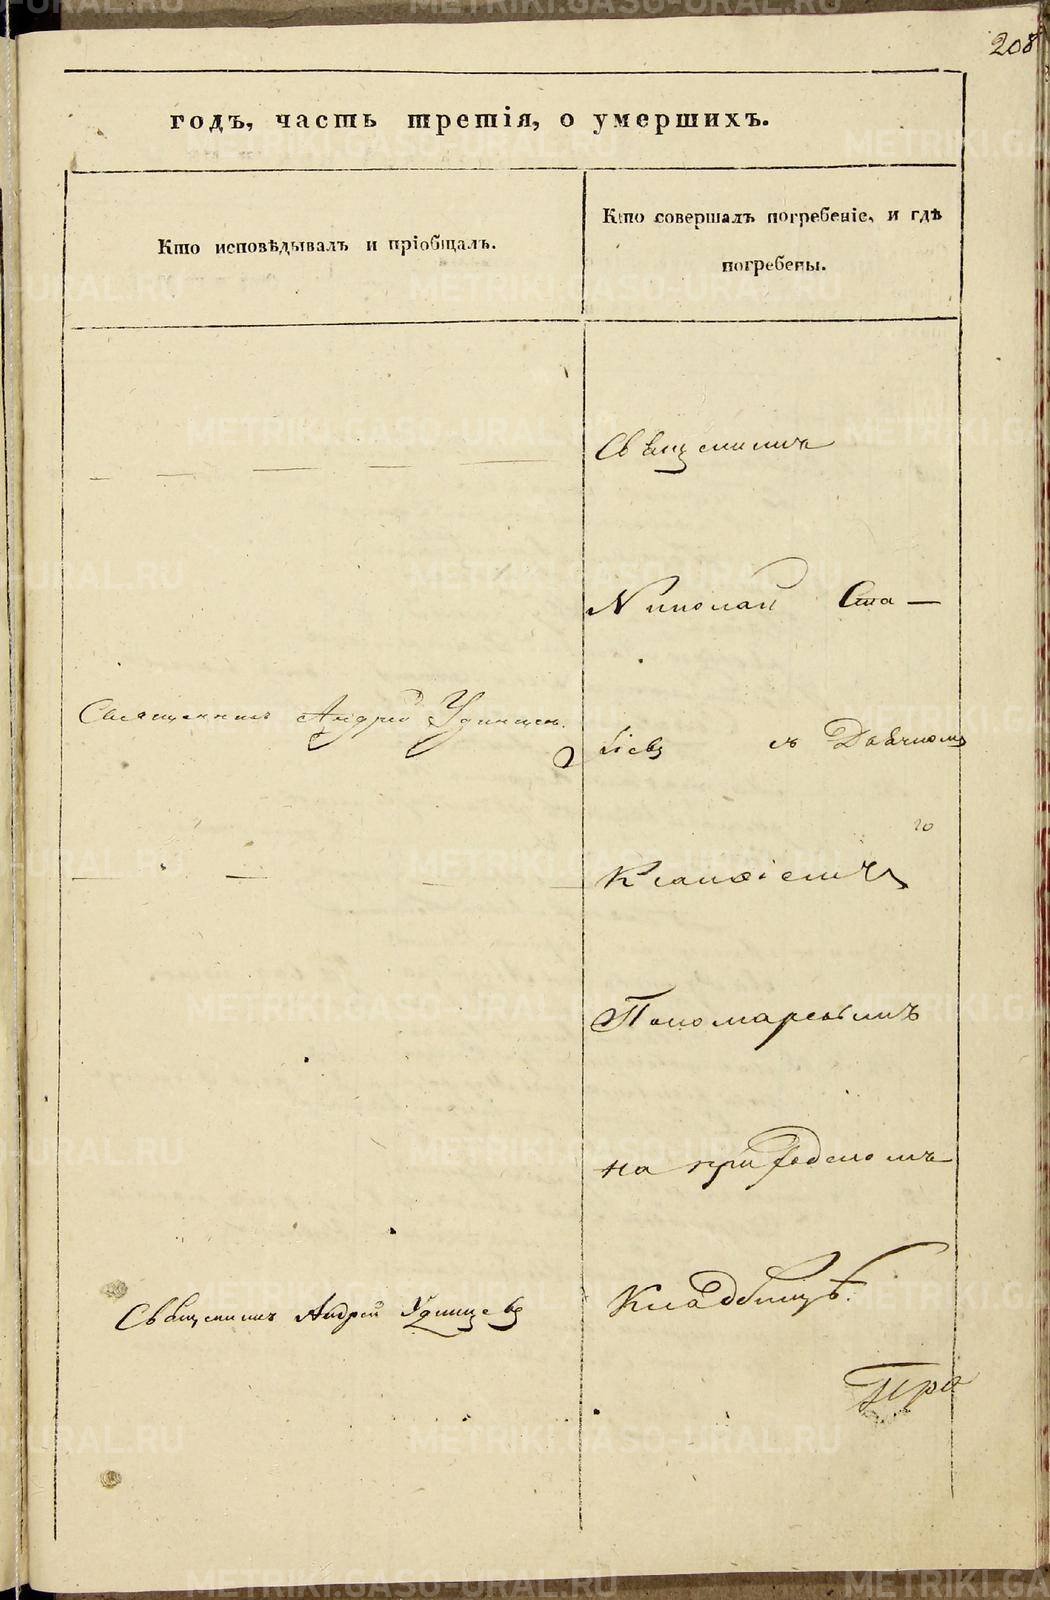 208
годъ, часть третія, о умершихъ.
Кто исповѣдывалъ и пріобщалъ.
Кто совершалъ погребеніе, и гдѣ
погребены.
Священникъ
Николай Ста-
Священникъ Андрей Удинцевъ.
фіевъ съ Дьячкомъ
Пономаревымъ
на приходскомъ
Кладбищѣ.
Священникъ Андрей Удинцевъ
METRIKI.GASO-URAL.RU